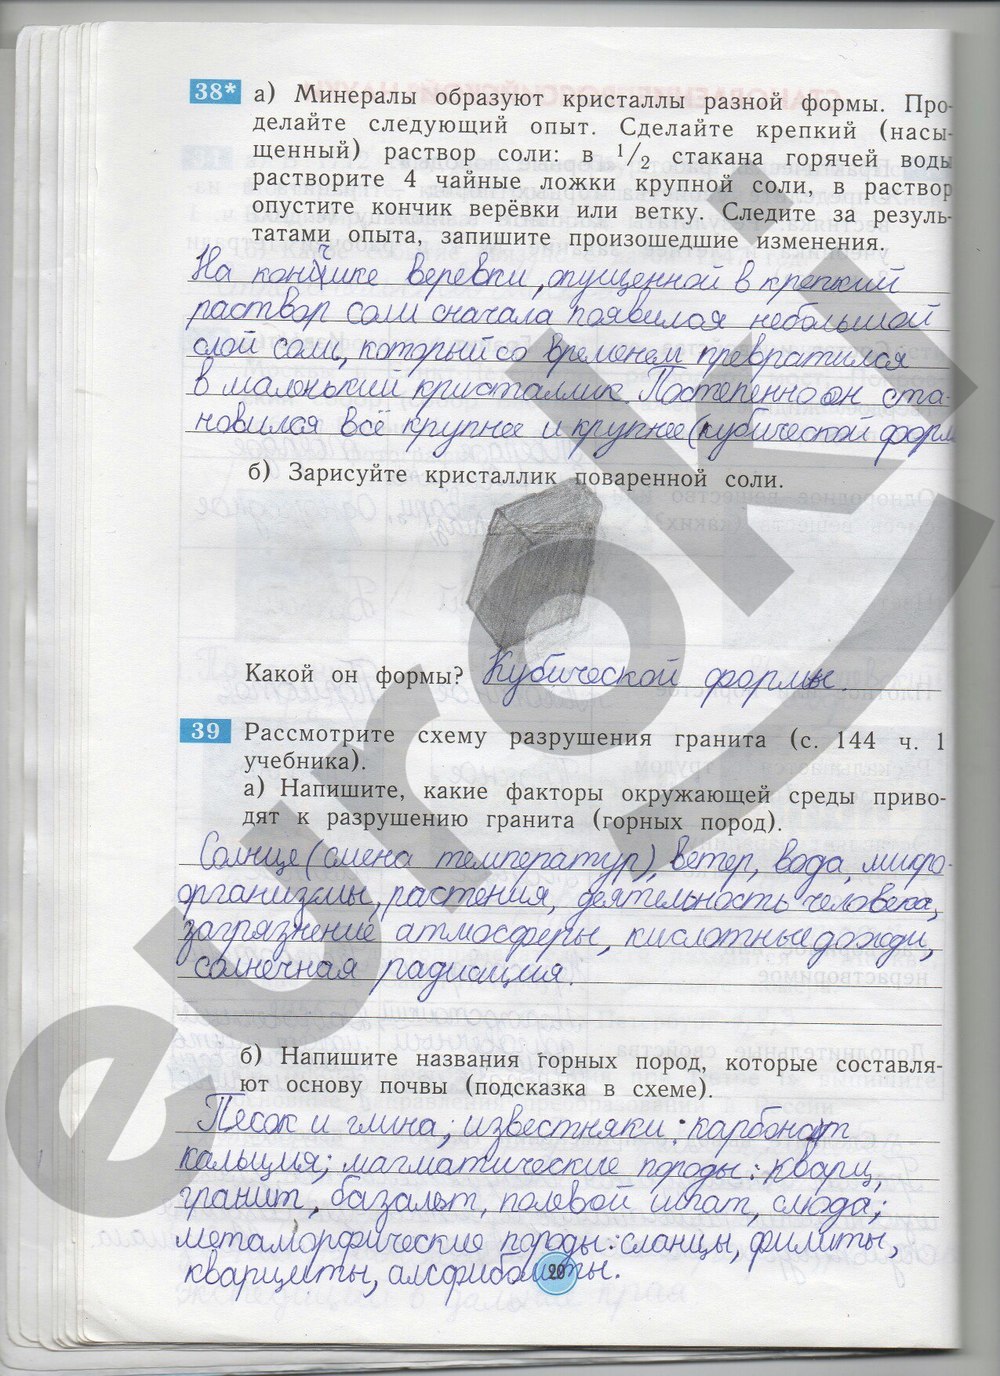 38* а) Минералы образуют кристаллы разной формы. Про-
делайте следующий опыт. Сделайте крепкий (насы-
щенный) раствор соли: в 1/2 стакана горячей воды
растворите 4 чайные ложки крупной соли, в раствор
опустите кончик верёвки или ветку. Следите за резуль-
татами опыта, запишите произошедшие изменения.
На кончике веревки, опущенной в крепкий
раствор соли сначала появился небольшой
слой соли, который со временем превратился
в маленький кристаллик. Постепенно он ста-
новился всё крупнее и крупнее (кубической форм
б) Зарисуйте кристаллик поваренной соли.
Какой он формы? Кубической формы.
39 Рассмотрите схему разрушения гранита (с. 144 ч. 1
учебника).
а) Напишите, какие факторы окружающей среды приво-
дят к разрушению гранита (горных пород).
Солнце (смена температур), ветер, вода, микро-
организмы, растения, деятельность человека,
загрязнение атмосферы, кислотные дожди,
солнечная радиация.
б) Напишите названия горных пород, которые составля-
ют основу почвы (подсказка в схеме).
Песок и глина; известняки: карбонат
кальция; магматические породы: кварц,
гранит, базальт, полевой шпат, слюда;
метаморфические породы: сланцы, филиты,
кварциты, алсфиболиты.
20
euroki